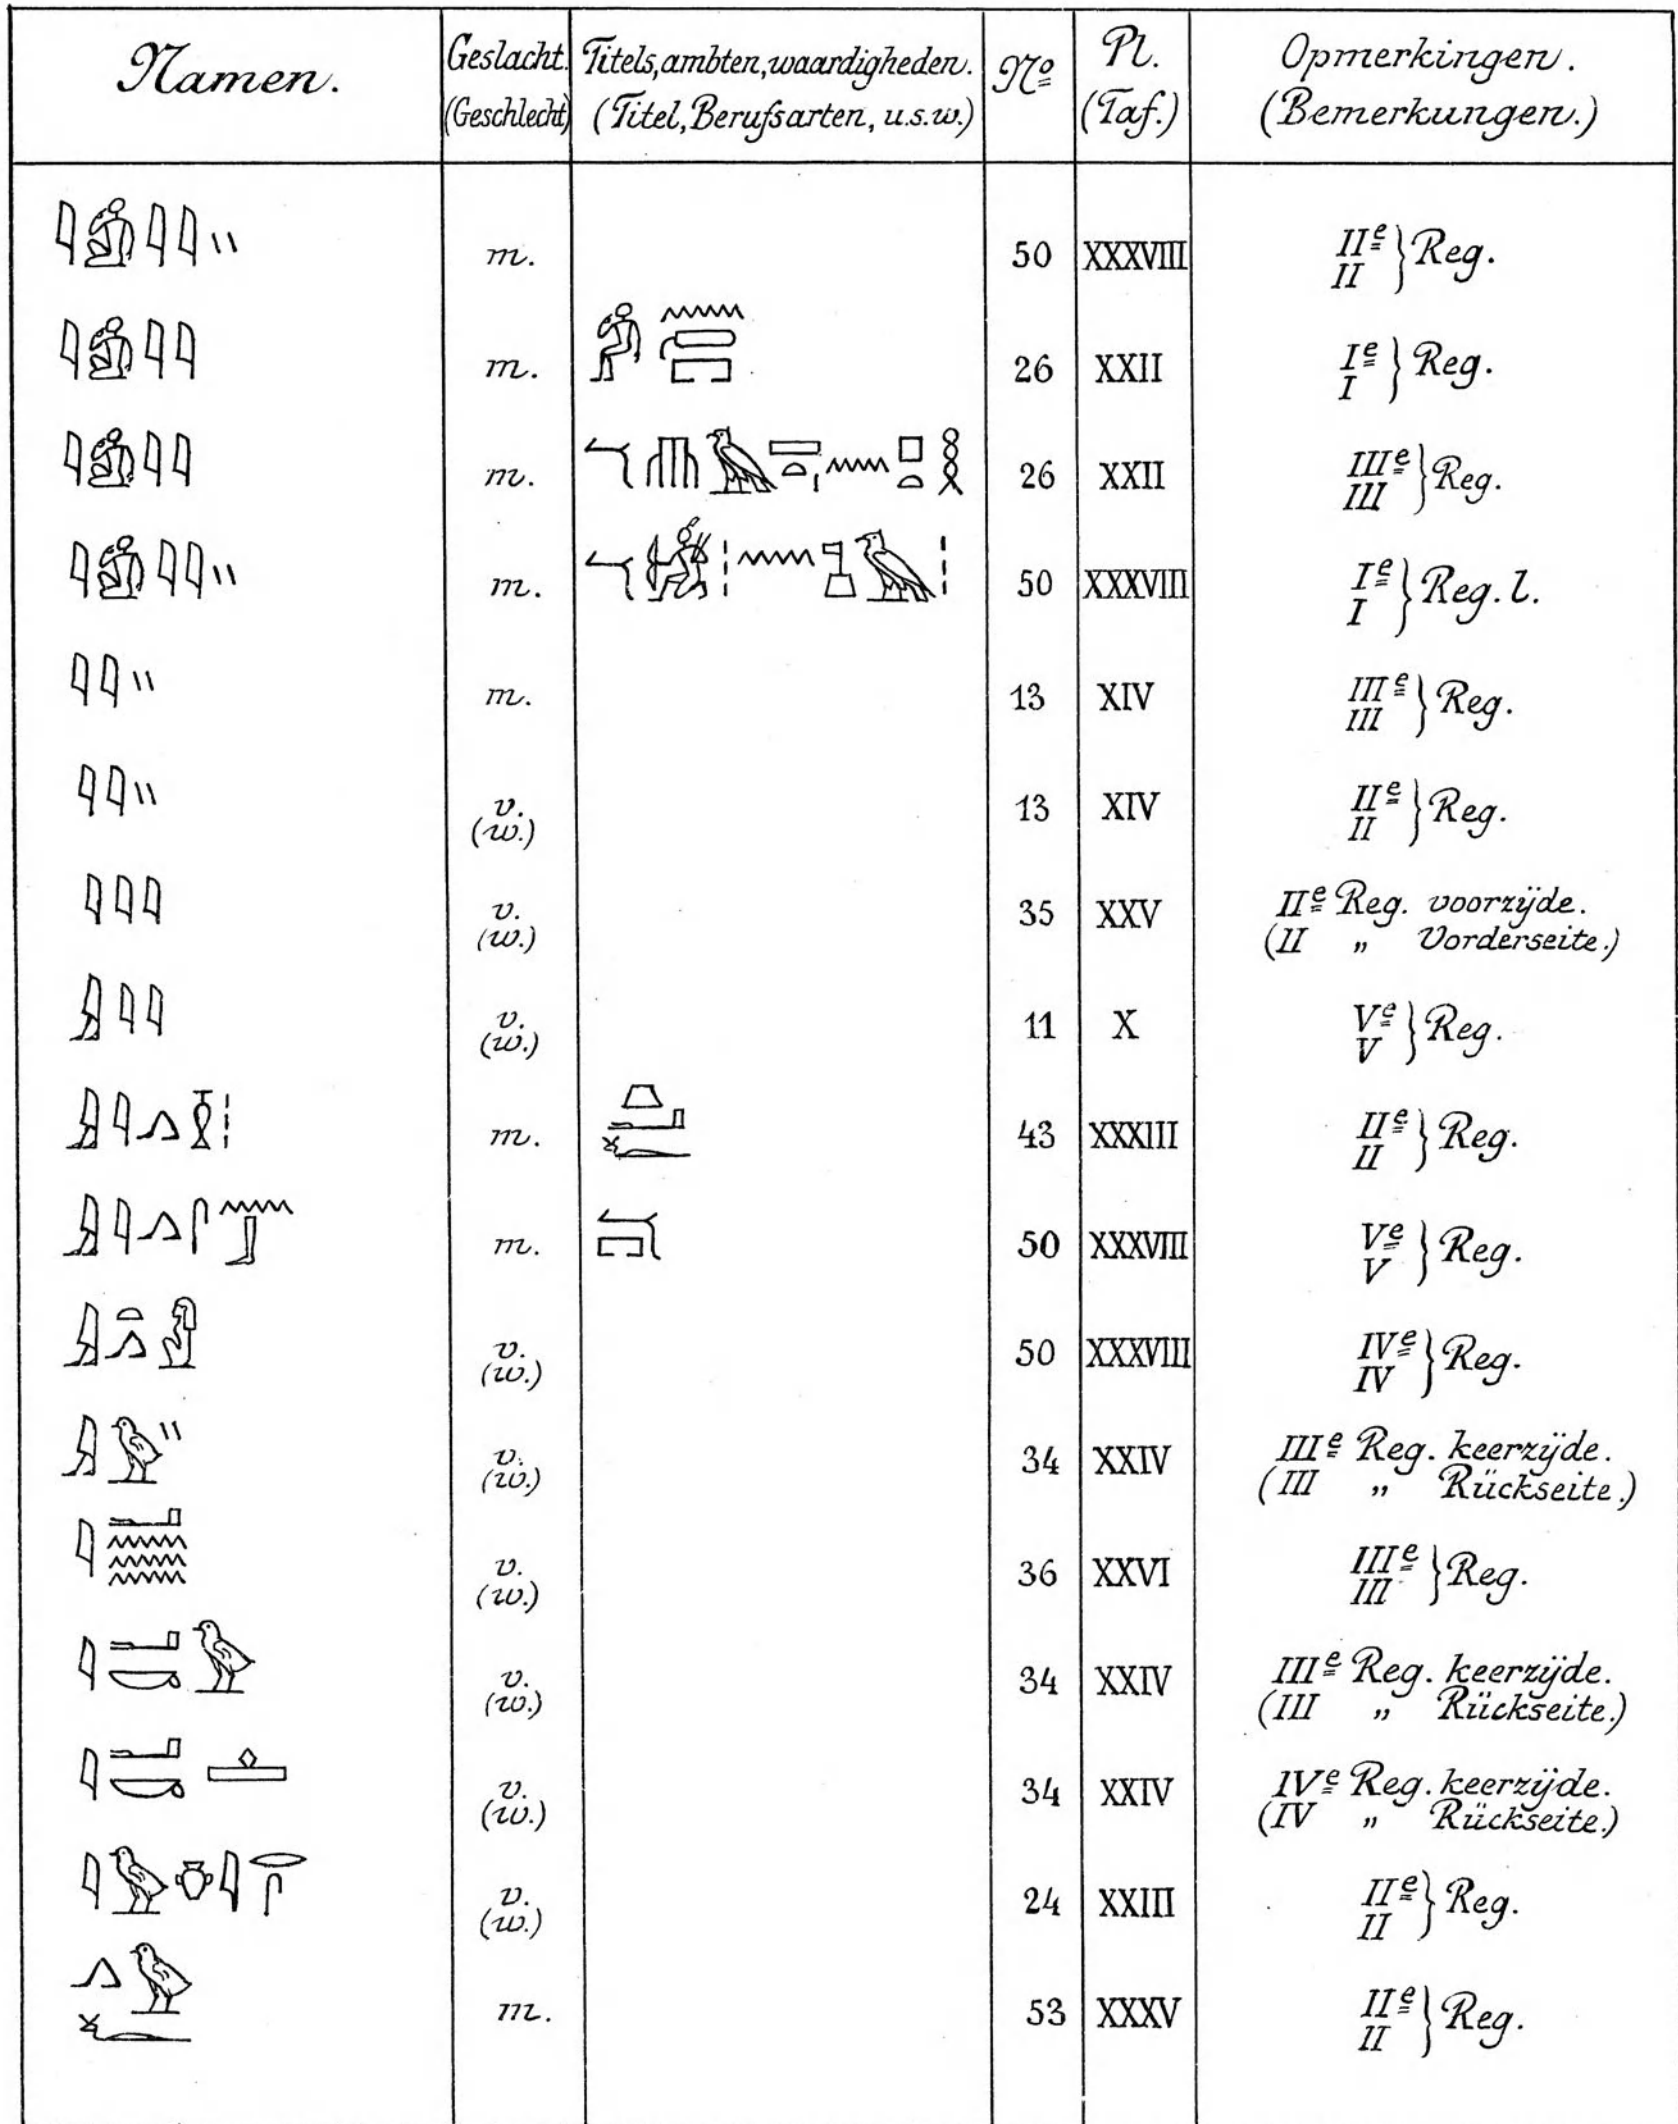 Namen.
Geslacht. (Geschlecht)
Titels, ambten, waardigheden. (Titel, Berufsarten, u.s.w.)
No
Pl. (Taf.)
Opmerkingen. (Bemerkungen.)
𓇋𓀁𓇋𓇋𓏭 m. 50 XXXVIII IIe II } Reg.
𓇋𓀁𓇋𓇋 m. 26 XXII Ie I } Reg.
𓇋𓀁𓇋𓇋 m. 26 XXII IIIe III } Reg.
𓇋𓀁𓇋𓇋𓏭 m. 50 XXXVIII Ie I } Reg. l.
𓇋𓇋𓏭 m. 13 XIV IIIe III } Reg.
𓇋𓇋𓏭 v. (w.) 13 XIV IIe II } Reg.
𓇋𓇋𓇋 v. (w.) 35 XXV IIe Reg. voorzijde.
(II „ Vorderseite.)
𓇍𓇋𓇋 v. (w.) 11 X Ve V } Reg.
𓇍𓇋𓂻 m. 43 XXXIII IIe II } Reg.
𓇍𓇋𓂻𓋴𓈖𓃀 m. 50 XXXVIII Ve V } Reg.
𓇍𓏏𓂻𓁐 v. (w.) 50 XXXVIII IVe IV } Reg.
𓇍𓅱𓏭 v. (w.) 34 XXIV IIIe Reg. keerzijde.
(III „ Rückseite.)
𓇋𓂝𓈗 v. (w.) 36 XXVI IIIe III } Reg.
𓇋𓂝𓎡𓅱 v. (w.) 34 XXIV IIIe Reg. keerzijde.
(III „ Rückseite.)
𓇋𓂝𓎡𓊵 v. (w.) 34 XXIV IVe Reg. keerzijde.
(IV „ Rückseite.)
𓇋𓅱𓄣𓇋𓂋𓋴 v. (w.) 24 XXIII IIe II } Reg.
𓂻𓅱𓆑 m. 53 XXXV IIe II } Reg.